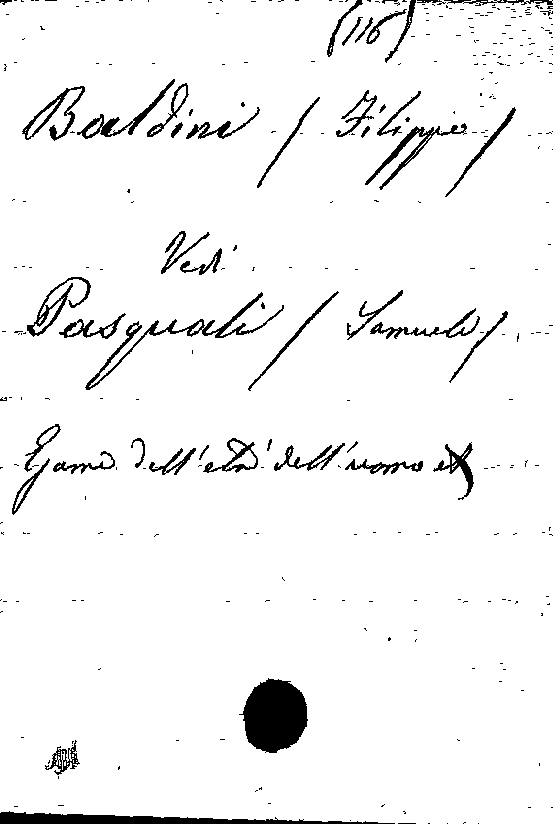 (116)
Baldini / Filippo /
Vedi
Pasquali / Samuele /
Esame dell'età dell'uomo